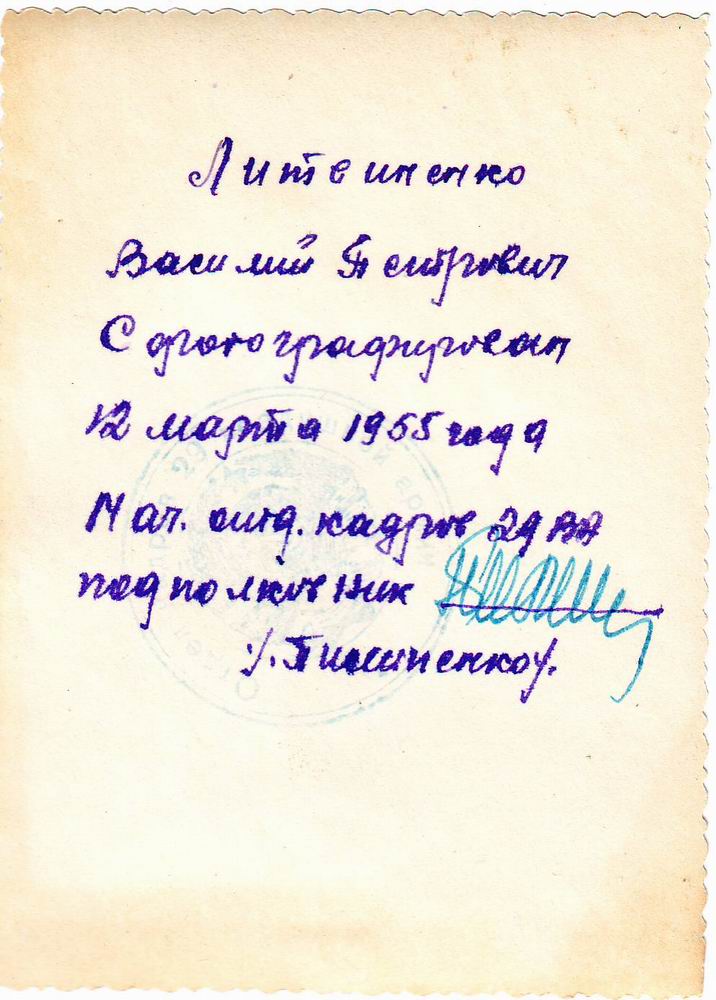 Литвиненко
Василий Петрович
Сфотографирован
12 марта 1955 года
Нач. отд. кадров 29 ВА
подполковник
/. Пилипенко /.